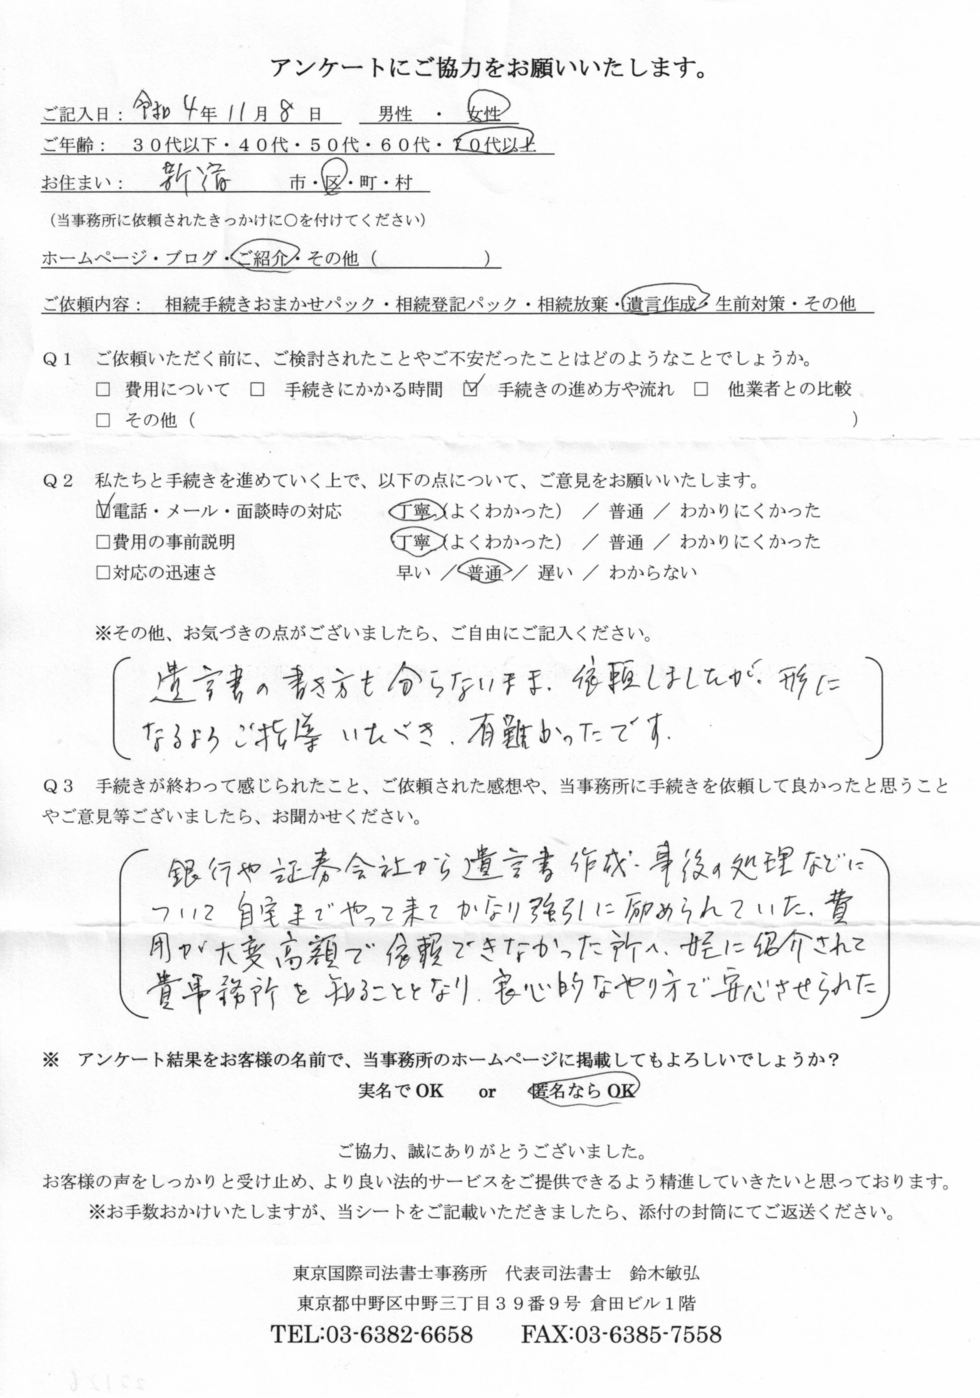 アンケートにご協力をお願いいたします。
ご記入日：令和4年11月8日　男性・女性
ご年齢：　３０代以下・４０代・５０代・６０代・７０代以上
お住まい：　新宿　市・区・町・村
（当事務所に依頼されたきっかけに○を付けてください）
ホームページ・ブログ・ご紹介・その他（　　　　　　）
ご依頼内容：　相続手続きおまかせパック・相続登記パック・相続放棄・遺言作成・生前対策・その他
Ｑ１　ご依頼いただく前に、ご検討されたことやご不安だったことはどのようなことでしょうか。
□ 費用について　□ 手続きにかかる時間　☑ 手続きの進め方や流れ　□ 他業者との比較
□ その他（　　　　　　　　　　）
Ｑ２　私たちと手続きを進めていく上で、以下の点について、ご意見をお願いいたします。
☑電話・メール・面談時の対応　丁寧（よくわかった）　／　普通　／　わかりにくかった
□費用の事前説明　丁寧（よくわかった）　／　普通　／　わかりにくかった
□対応の迅速さ　早い　／　普通　／　遅い　／　わからない
※その他、お気づきの点がございましたら、ご自由にご記入ください。
遺言書の書き方も分らないまま、依頼しましたが、形に
なるようご指導いただき、有難かったです。
Ｑ３　手続きが終わって感じられたこと、ご依頼された感想や、当事務所に手続きを依頼して良かったと思うこと
やご意見等ございましたら、お聞かせください。
銀行や証券会社から遺言書作成・事後の処理などに
ついて自宅までやって来てかなり強引に励められていた、費
用が大変高額で依頼できなかった所へ、姪に紹介されて
貴事務所を知ることとなり、良心的なやり方で安心させられた
※　アンケート結果をお客様の名前で、当事務所のホームページに掲載してもよろしいでしょうか？
実名でOK　or　匿名ならOK
ご協力、誠にありがとうございました。
お客様の声をしっかりと受け止め、より良い法的サービスをご提供できるよう精進していきたいと思っております。
※お手数おかけいたしますが、当シートをご記載いただきましたら、添付の封筒にてご返送ください。
東京国際司法書士事務所　代表司法書士　鈴木敏弘
東京都中野区中野三丁目３９番９号 倉田ビル１階
TEL:03-6382-6658　FAX:03-6385-7558